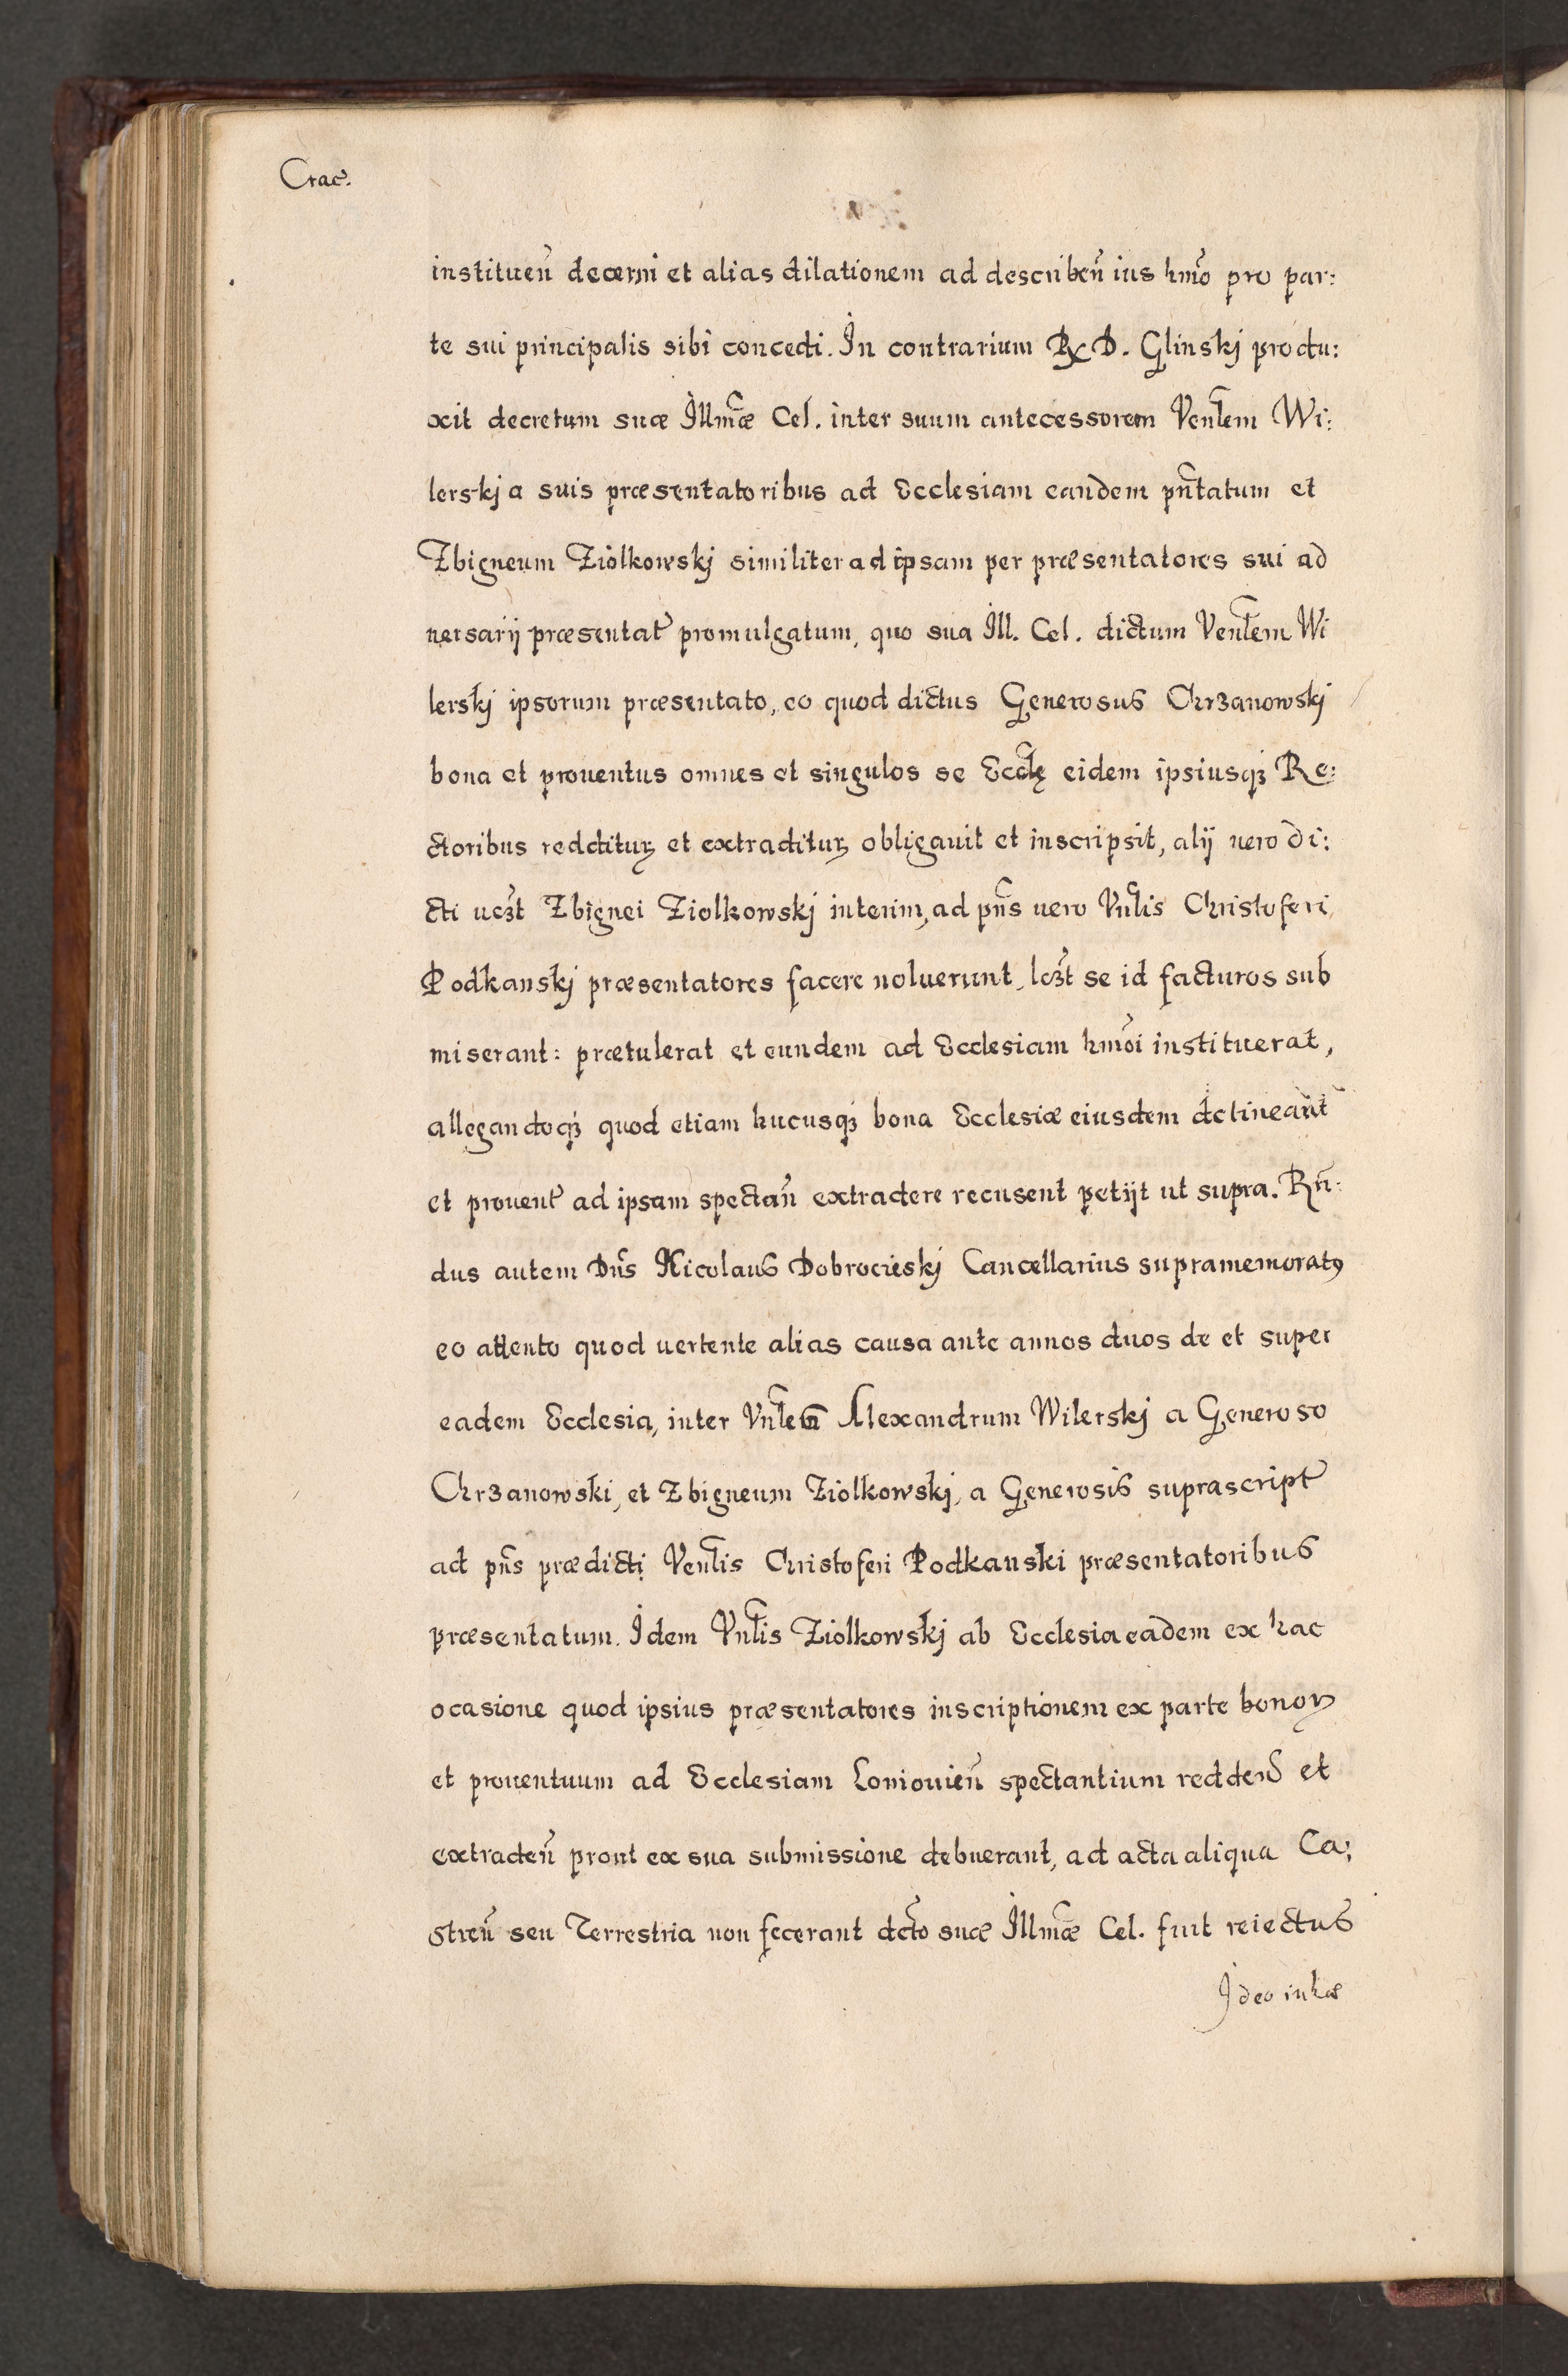 Crac.
instituen̄ decerni et alias dilationem ad describen̄ ius hmōi pro par:
te sui principalis sibi concedi. In contrarium R D. Glinskj produ:
xit decretum suæ Illmæ Cel. inter suum antecessorem Venlem Wi:
lerskj a suis præsentatoribus ad Ecclesiam eandem pn̄tatum et
Zbigneum Ziolkowskj similiter ad ipsam per præsentatores sui ad
uersarij præsentat promulgatum, quo sua Ill. Cel. dictum Venlem Wi
lerskj ipsorum præsentato, eo quod dictus Generosus Chrzanowskj
bona et prouentus omnes et singulos se Eccłę eidem ipsiusqꝫ Re:
ctoribus redditurꝫ et extraditurꝫ obligauit et inscripsit, alij uero di:
cti ucꝫt Zbignei Ziolkowskj interim, ad pn̄s uero Vnlis Christoferi
Podkanskj præsentatores facere noluerunt, lcꝫt se id facturos sub
miserant: prætulerat et eundem ad Ecclesiam hmōi instituerat,
allegandoqꝫ quod etiam hucusqꝫ bona Ecclesiæ eiusdem detineant
et prouent ad ipsam spectan̄ extradere recusent petijt ut supra. Rn̄:
dus autem Dn̄s Nicolaus Dobrocieskj Cancellarius supramemoratꝰ
eo attento quod uertente alias causa ante annos duos de et super
eadem Ecclesia, inter Vnlem Alexandrum Wilerskj a Generoso
Chrzanowski, et Zbigneum Ziolkowskj, a Generosis suprascript
ad pn̄s prædicti Venlis Christoferi Podkanski præsentatoribus
præsentatum. Idem Vnlis Ziolkowskj ab Ecclesia eadem ex hac
ocasione quod ipsius præsentatores inscriptionem ex parte bonorꝫ
et prouentuum ad Ecclesiam Loniouien̄ spectantium redden̄ et
extraden̄ prout ex sua submissione debuerant, ad acta aliqua Ca:
stren̄ seu Terrestria non fecerant dcto suæ Illmæ Cel. fuit reiectus
Ideo inhæ